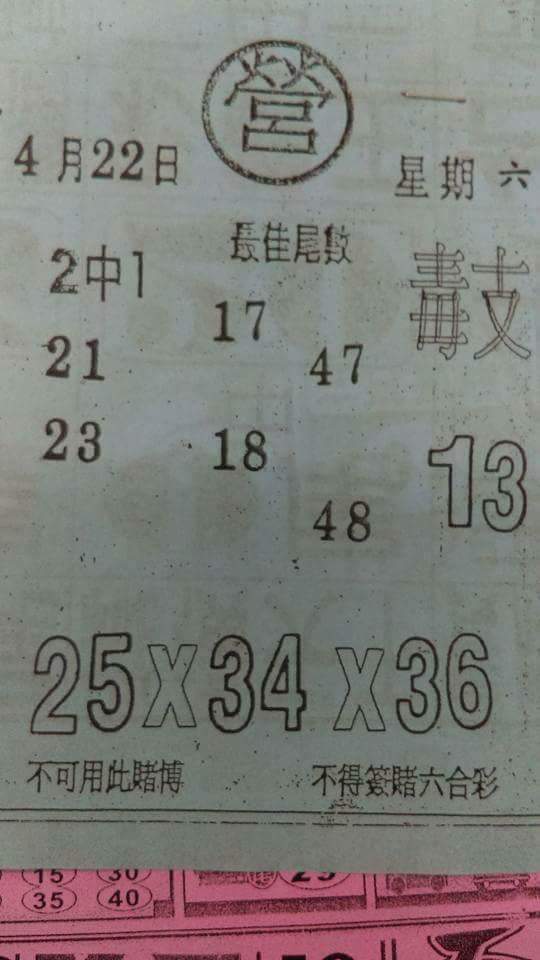 營
一
4月22日
星期六
最佳尾數
2中1
17
21
47
23
18
13
48
25X34X36
不可用此賭博
不得簽賭六合彩
15 30
35 40